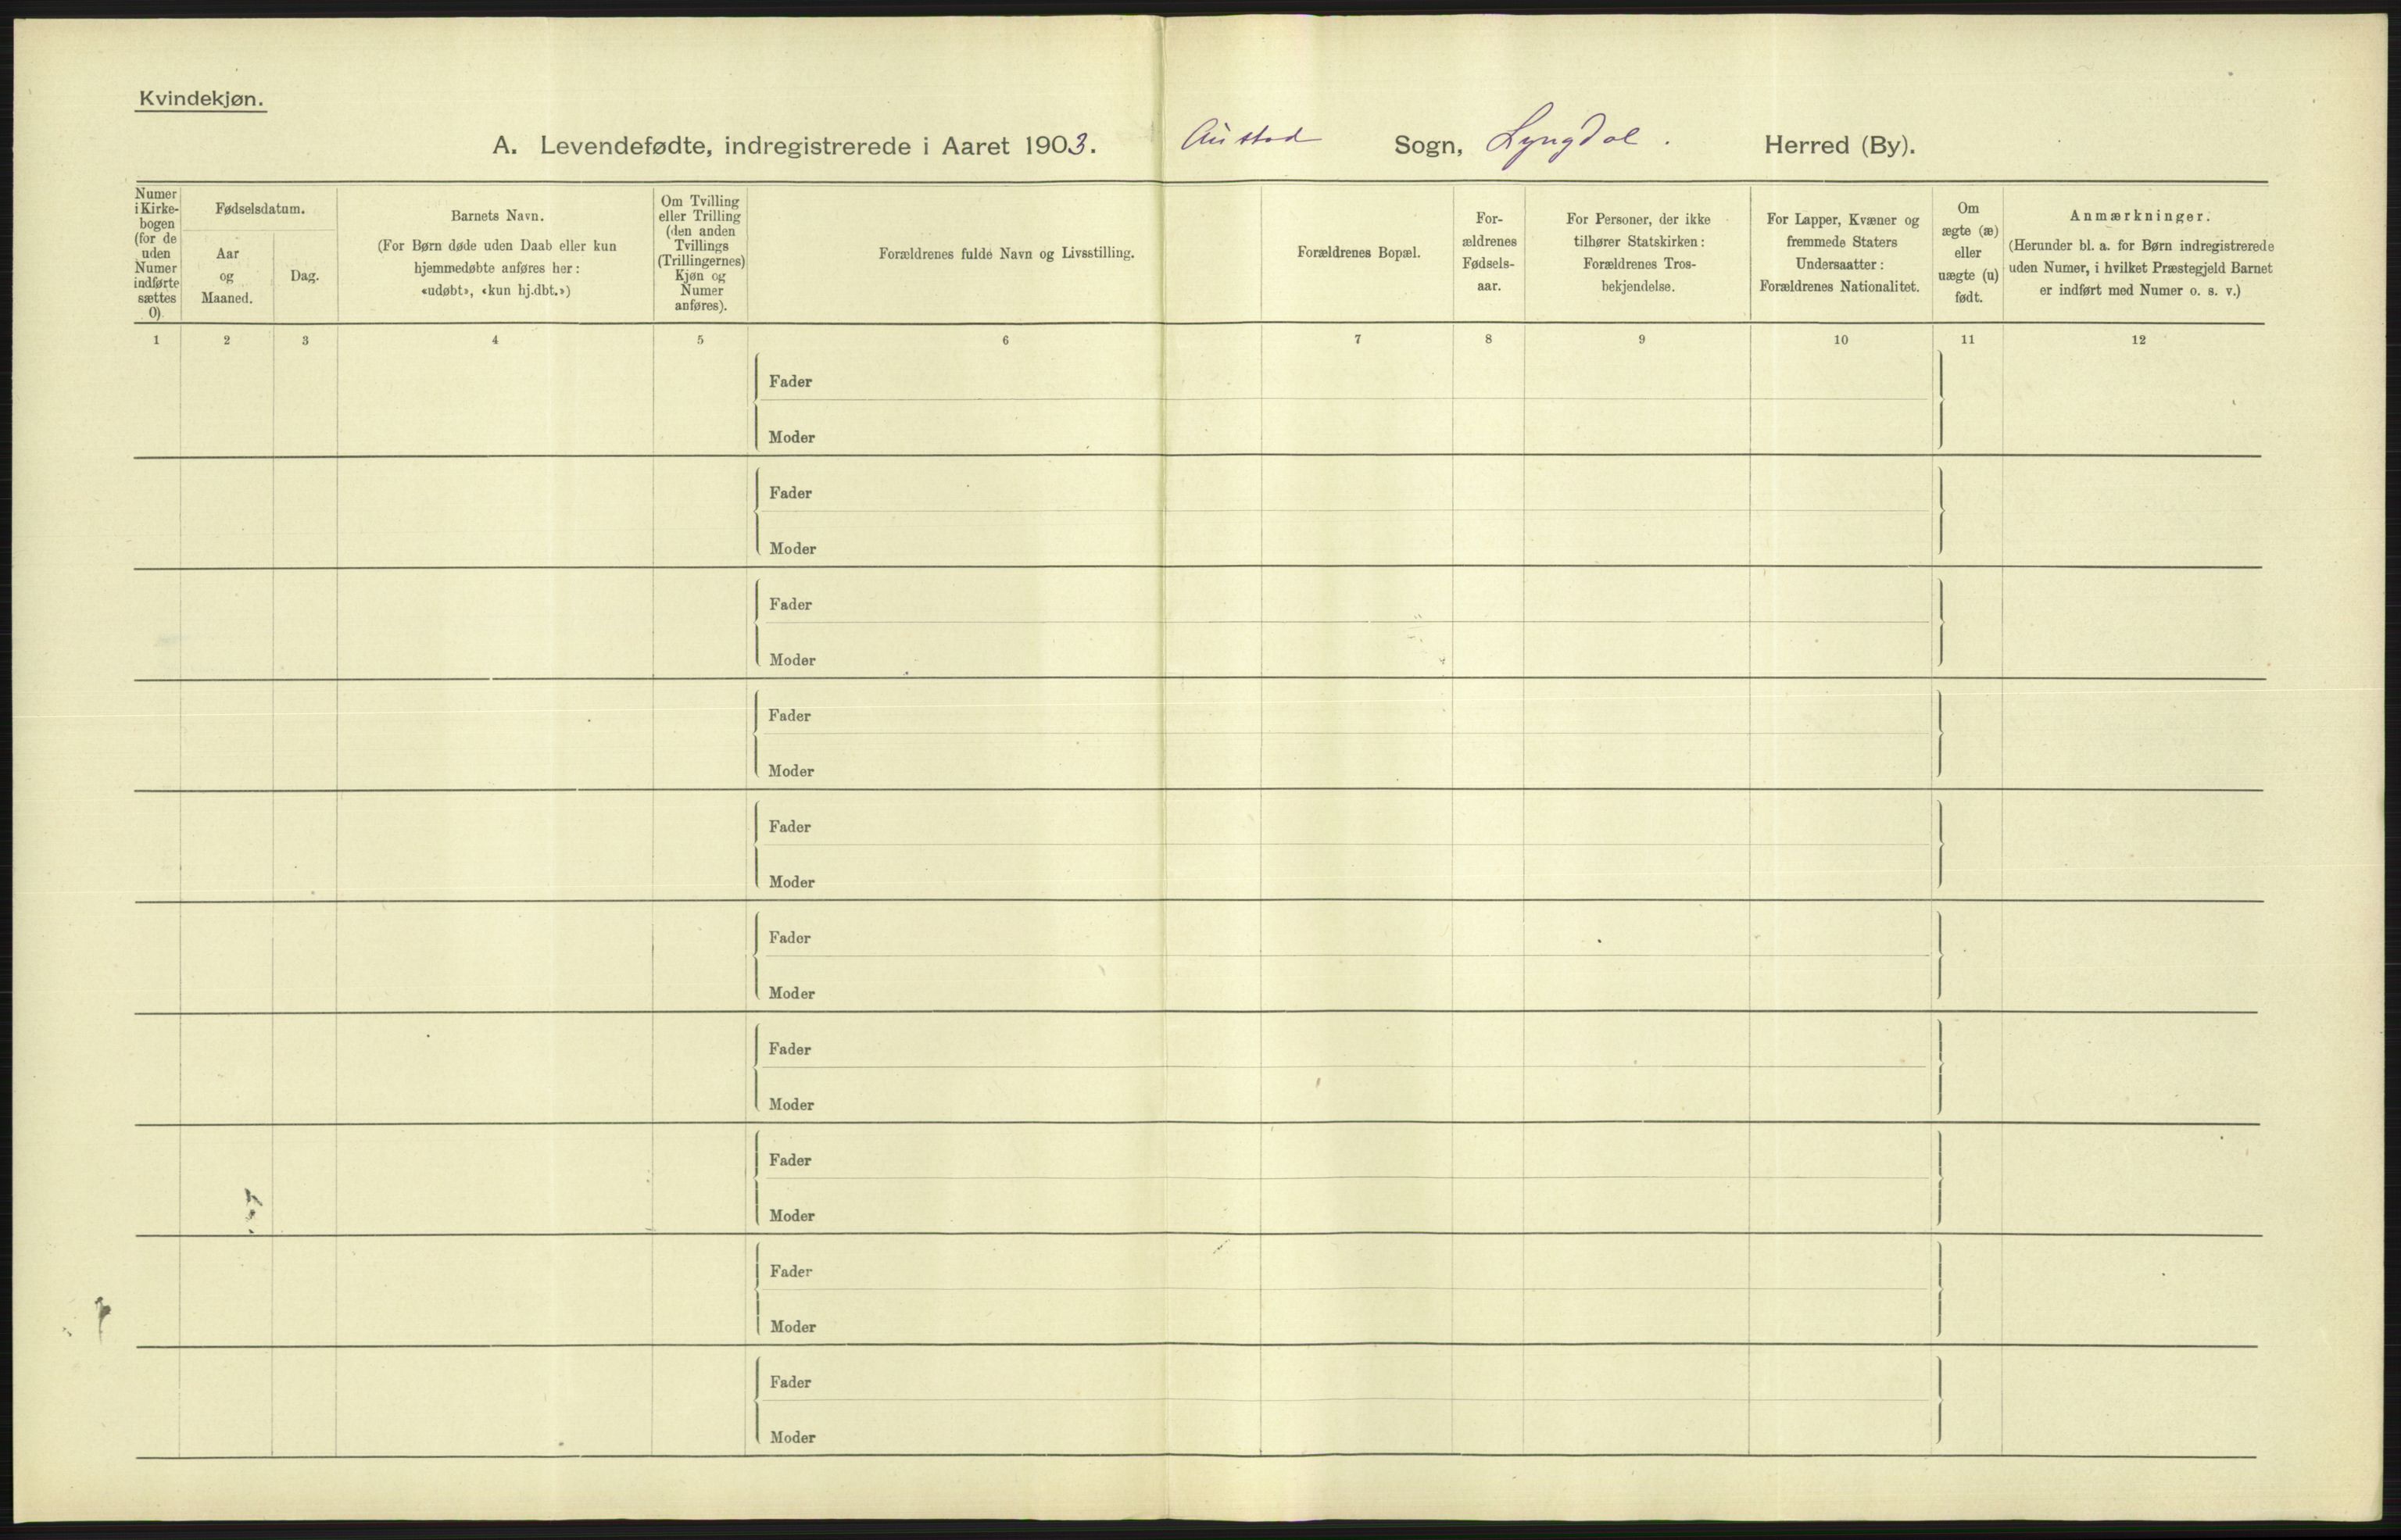 Kvindekjøn.
A. Levendefødte, indregistrerede i Aaret 1903. Austad Sogn, Lyngdal. Herred (By).
Numer
i Kirke-
bogen
(for de
uden
Numer
indførte
sættes
0)
Fødselsdatum.
Aar
og
Maaned.
Dag.
Barnets Navn.
(For Børn døde uden Daab eller kun
hjemmedøbte anføres her:
«udøbt», «kun hj.dbt.»)
Om Tvilling
eller Trilling
(den anden
Tvillings
(Trillingernes)
Kjøn og
Numer
anføres).
Forældrenes fulde Navn og Livsstilling.
Forældrenes Bopæl.
For-
ældrenes
Fødsels-
aar.
For Personer, der ikke
tilhører Statskirken:
Forældrenes Tros-
bekjendelse.
For Lapper, Kvæner og
fremmede Staters
Undersaatter:
Forældrenes Nationalitet.
Om
ægte (æ)
eller
uægte (u)
født.
Anmærkninger.
(Herunder bl. a. for Børn indregistrerede
uden Numer, i hvilket Præstegjeld Barnet
er indført med Numer o. s. v.)
1 2 3 4 5 6 7 8 9 10 11 12
Fader
Moder
Fader
Moder
Fader
Moder
Fader
Moder
Fader
Moder
Fader
Moder
Fader
Moder
Fader
Moder
Fader
Moder
Fader
Moder